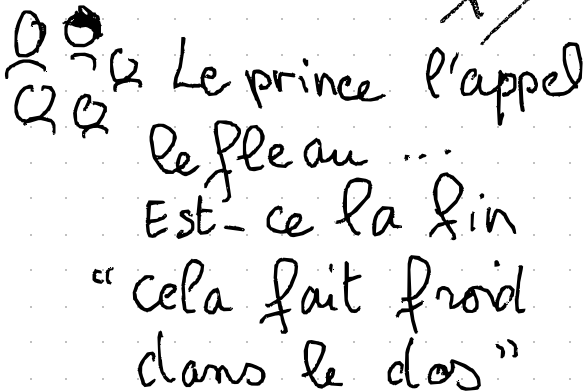 Le prince l'appel
le fleau ...
Est-ce la fin
"cela fait froid
dans le dos"